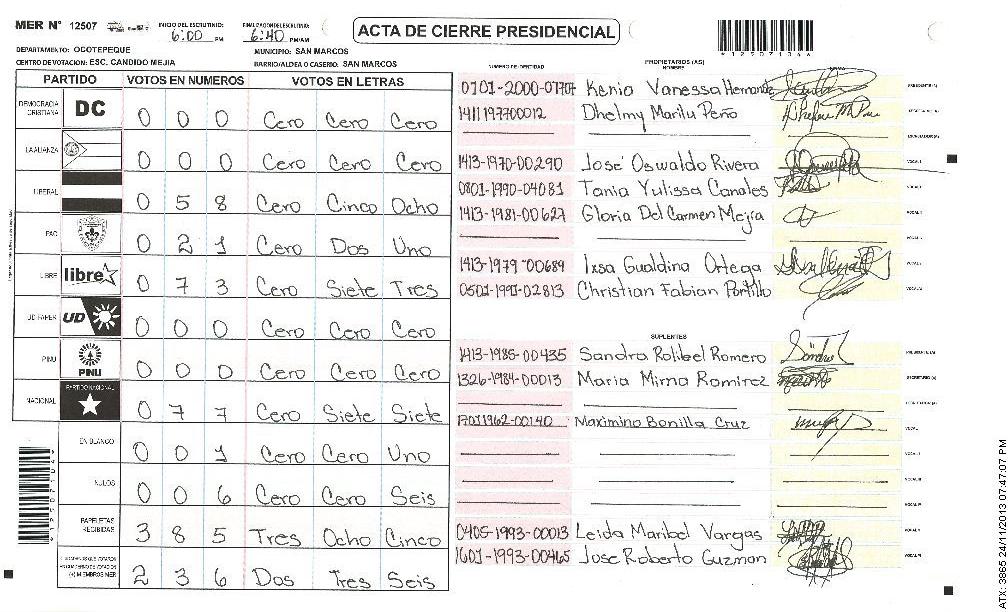 MER N° 12507
INICIO DEL ESCRUTINIO:
6:00 PM
FINALIZACION DEL ESCRUTINIO:
6:40 PM/AM
ACTA DE CIERRE PRESIDENCIAL
DEPARTAMENTO: OCOTEPEQUE
MUNICIPIO: SAN MARCOS
CENTRO DE VOTACION: ESC. CANDIDO MEJIA
BARRIO/ALDEA O CASERIO: SAN MARCOS
PARTIDO VOTOS EN NUMEROS VOTOS EN LETRAS
DEMOCRACIA CRISTIANA DC 0 0 0 Cero Cero Cero
LA ALIANZA 0 0 0 Cero Cero Cero
LIBERAL 0 5 8 Cero Cinco Ocho
PAC 0 2 1 Cero Dos Uno
LIBRE libre 0 7 3 Cero Siete Tres
UD FAPER UD 0 0 0 Cero Cero Cero
PINU PINU 0 0 0 Cero Cero Cero
NACIONAL PARTIDO NACIONAL 0 7 7 Cero Siete Siete
EN BLANCO 0 0 1 Cero Cero Uno
NULOS 0 0 6 Cero Cero Seis
PAPELETAS RECIBIDAS 3 8 5 Tres Ocho Cinco
(+) MIEMBROS MER 2 3 6 Dos Tres Seis
NUMERO DE IDENTIDAD PROPIETARIOS (AS) NOMBRE FIRMA
0701-2000-07707 Kenia Vanessa Hernandez PRESIDENTE (A)
1411197700012 Dhelmy Marilu Peño SECRETARIO (A)
ESCRUTADOR (A)
1413-1970-00290 José Oswaldo Rivera VOCAL I
0801-1990-04081 Tania Yulissa Canales VOCAL II
1413-1981-00627 Gloria Del Carmen Mejía VOCAL III
1413-1979-00689 Ixsa Gualdina Ortega
0502-1990-02813 Christian Fabian Portillo
SUPLENTES
1413-1985-00435 Sandra Rolibel Romero PRESIDENTE (A)
1326-1984-00013 Maria Mirna Ramirez SECRETARIO (A)
ESCRUTADOR (A)
17011962-00140 Maximino Bonilla Cruz VOCAL I
0405-1993-00013 Leida Maribel Vargas
1601-1993-00465 Jose Roberto Guzman
ATX: 3865 24/11/2013 07:47:07 PM